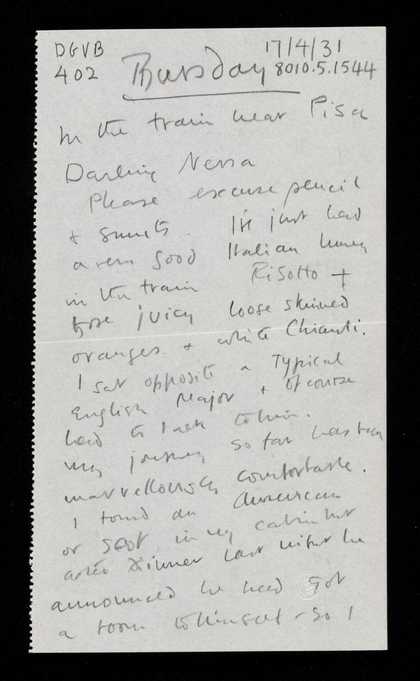 DGVB 17/4/31
402 8010.5.1544
Thursday
In the train near Pisa
Darling Nessa
Please excuse pencil
& smuts. I've just had
a very good Italian lunch
in the train Risotto +
those juicy loose skinned
oranges & white Chianti.
I sat opposite a typical
English Major & of course
had to talk to him.
my journey so far has been
marvellously comfortable.
I found an American
or Scot in my cabin but
after dinner last night he
announced he had got
a room to himself - so I